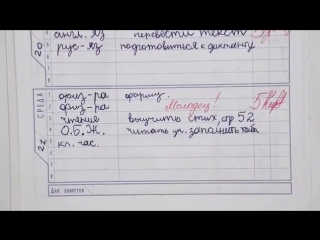 англ. яз перевести текст
20 рус-яз подготовиться к диктанту
СРЕДА
физ-ра форму.
физ-ра Молодец! 5
чтение выучить стих, стр 52
О.Б.Ж. читать уч. заполнить
21 кл. час.
Для заметок